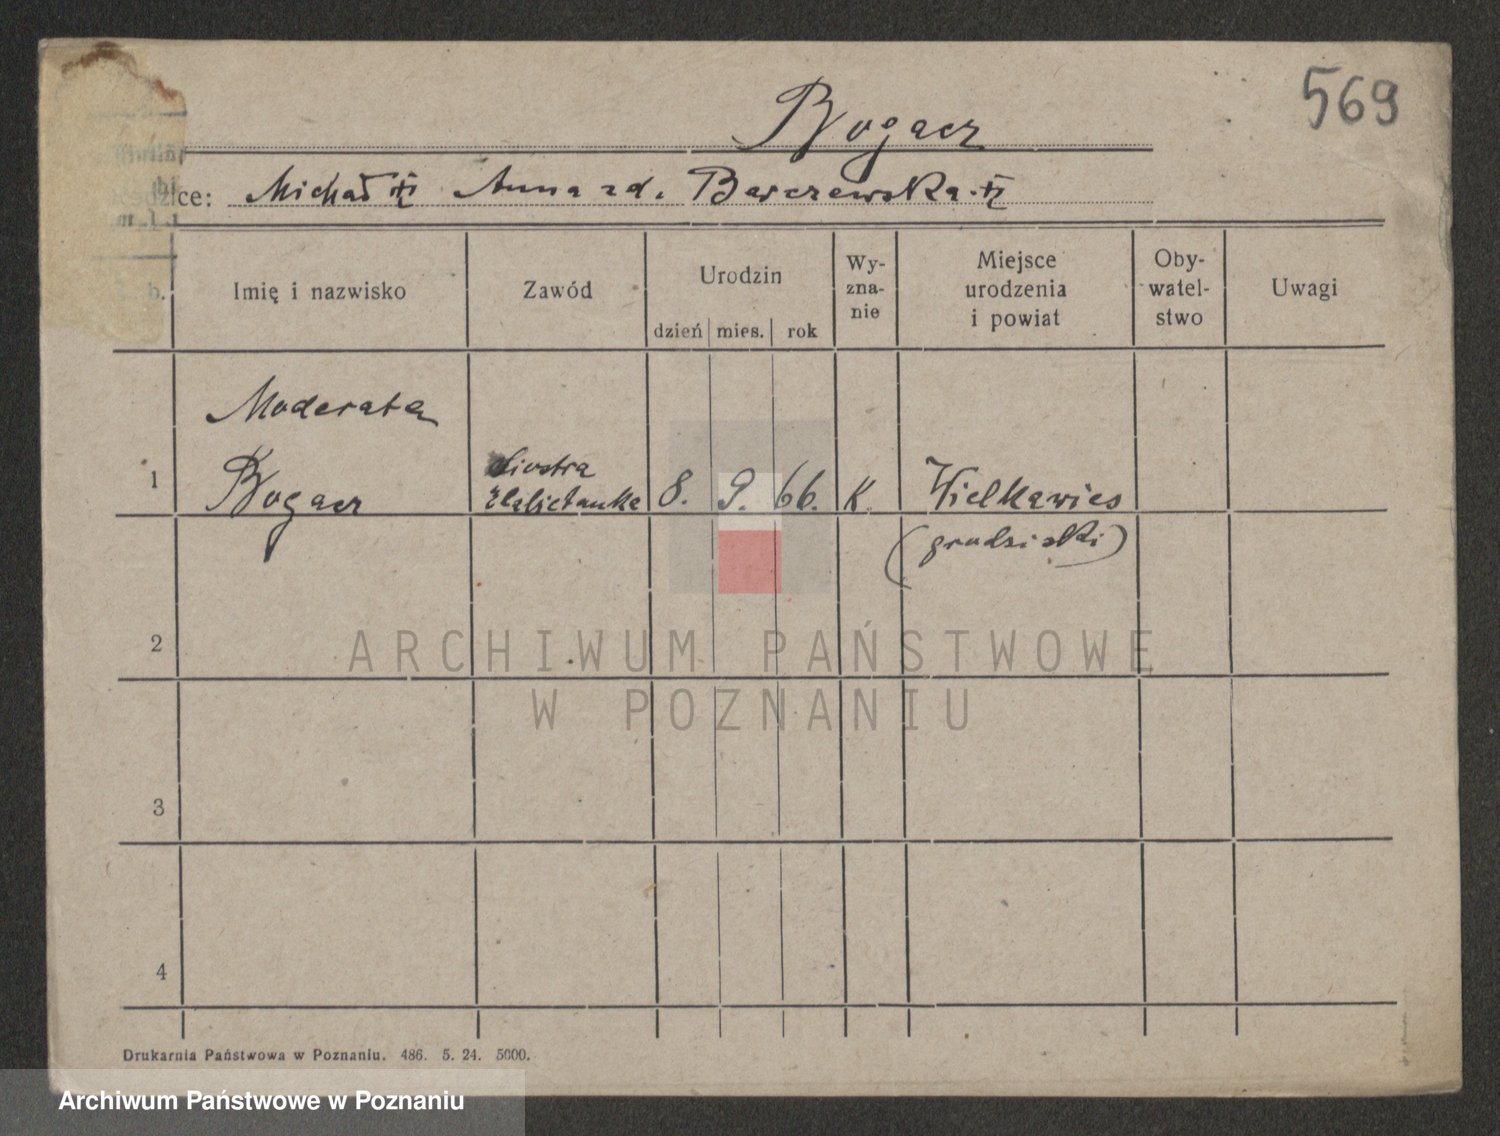 569
Bogacz
Rodzice: Michał Anna zd. Barczewska
Imię i nazwisko Zawód Urodzin dzień mies. rok Wy-zna-nie Miejsce urodzenia i powiat Oby-watel-stwo Uwagi
Moderata
1 Bogacz siostra elżbietanka 8. 9. 66. K. Wielkawieś
(grodziski)
2
ARCHIWUM PAŃSTWOWE
W POZNANIU
3
4
Drukarnia Państwowa w Poznaniu. 486. 5. 24. 5000.
Archiwum Państwowe w Poznaniu